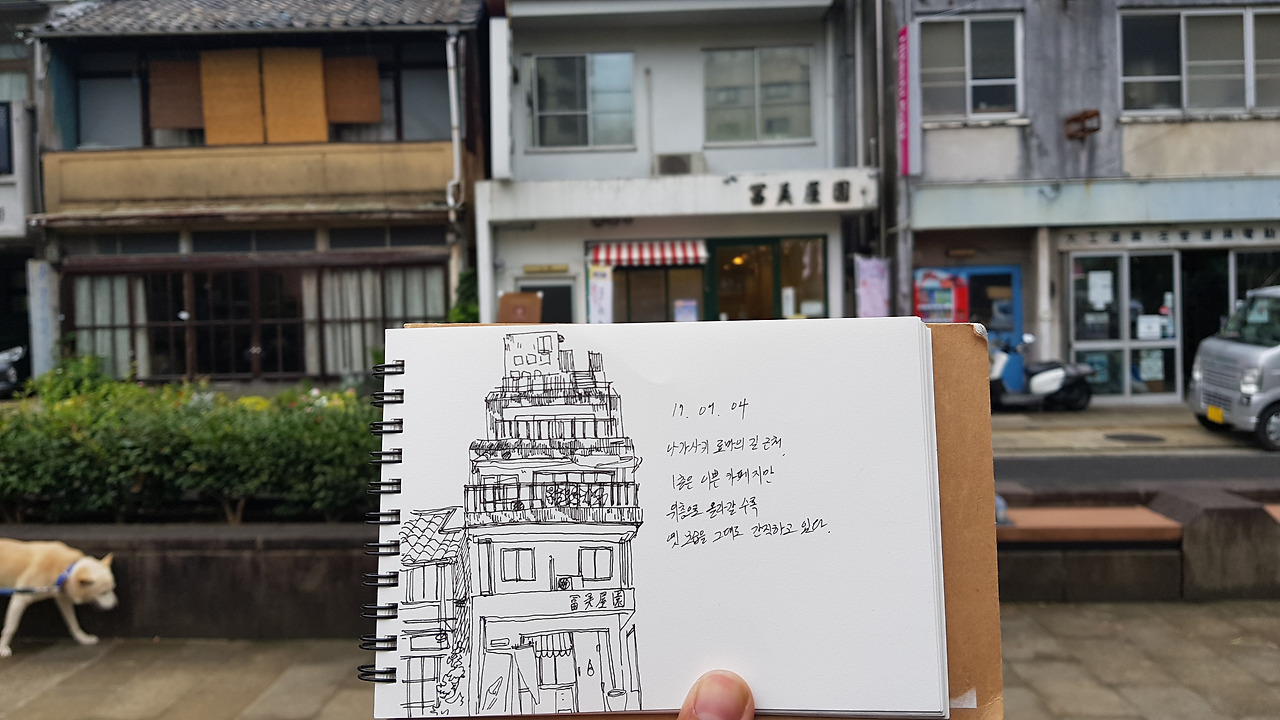 冨美屋園
17. 09. 04
나가사키 로마의 길 근처,
1층은 이쁜 카페지만
위층으로 올라갈수록
옛 모습을 그대로 간직하고 있다.
冨美屋園